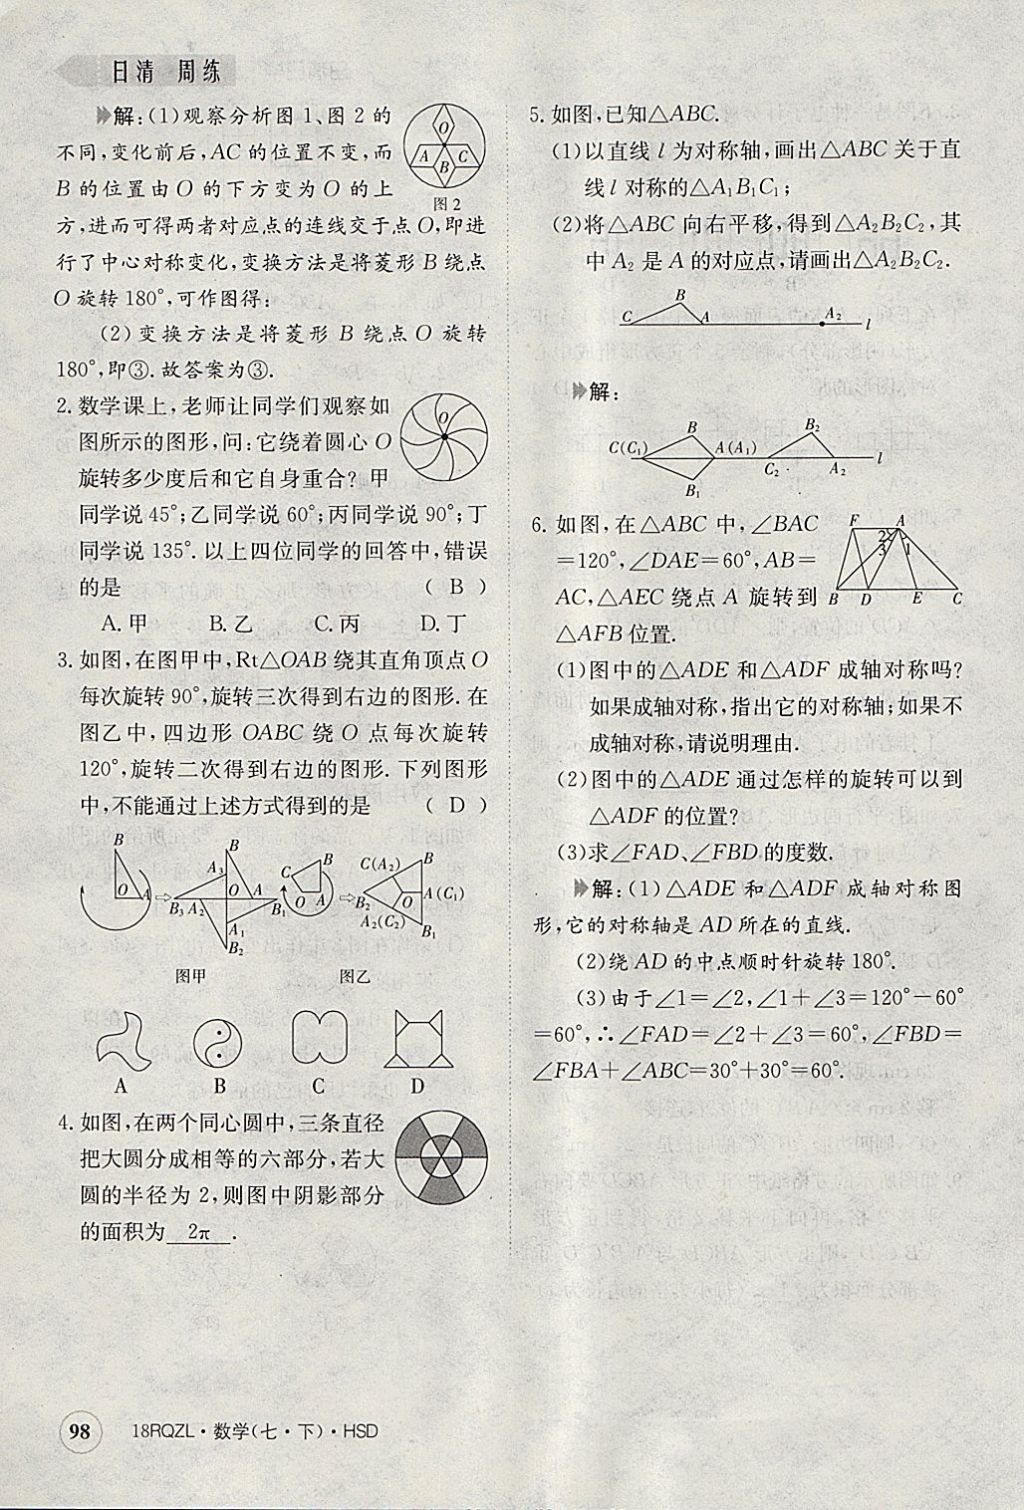 日清 周练
解:(1)观察分析图1、图2的
不同,变化前后,AC的位置不变,而
B的位置由O的下方变为O的上
方,进而可得两者对应点的连线交于点O,即进
行了中心对称变化,变换方法是将菱形B绕点
O旋转180°,可作图得:
O
A C
B
图2
(2)变换方法是将菱形B绕点O旋转
180°,即③.故答案为③.
2.数学课上,老师让同学们观察如
图所示的图形,问:它绕着圆心O
旋转多少度后和它自身重合?甲
同学说45°;乙同学说60°;丙同学说90°;丁
同学说135°.以上四位同学的回答中,错误
的是 ( B )
O
A.甲 B.乙 C.丙 D.丁
3.如图,在图甲中,Rt△OAB绕其直角顶点O
每次旋转90°,旋转三次得到右边的图形.在
图乙中,四边形OABC绕O点每次旋转
120°,旋转二次得到右边的图形.下列图形
中,不能通过上述方式得到的是 ( D )
B
O A
B
A₃
O A
B₃ A₂ B₁
A₁
B₂
B
C
O A
C(A₂) B
B₂ O A(C₁)
A₂(C₂) B₁
图甲 图乙
A B C D
4.如图,在两个同心圆中,三条直径
把大圆分成相等的六部分,若大
圆的半径为2,则图中阴影部分
的面积为 2π .
5.如图,已知△ABC.
(1)以直线l为对称轴,画出△ABC关于直
线l对称的△A₁B₁C₁;
(2)将△ABC向右平移,得到△A₂B₂C₂,其
中A₂是A的对应点,请画出△A₂B₂C₂.
B
C A A₂ l
解:
B B₂
C(C₁) A(A₁) l
C₂ A₂
B₁
6.如图,在△ABC中,∠BAC
=120°,∠DAE=60°,AB=
AC,△AEC绕点A旋转到
△AFB位置.
F A
2 1
3
B D E C
(1)图中的△ADE和△ADF成轴对称吗?
如果成轴对称,指出它的对称轴;如果不
成轴对称,请说明理由.
(2)图中的△ADE通过怎样的旋转可以到
△ADF的位置?
(3)求∠FAD、∠FBD的度数.
解:(1)△ADE和△ADF成轴对称图
形,它的对称轴是AD所在的直线.
(2)绕AD的中点顺时针旋转180°.
(3)由于∠1=∠2,∠1+∠3=120°-60°
=60°,∴∠FAD=∠2+∠3=60°,∠FBD=
∠FBA+∠ABC=30°+30°=60°.
98 18RQZL·数学(七·下)·HSD